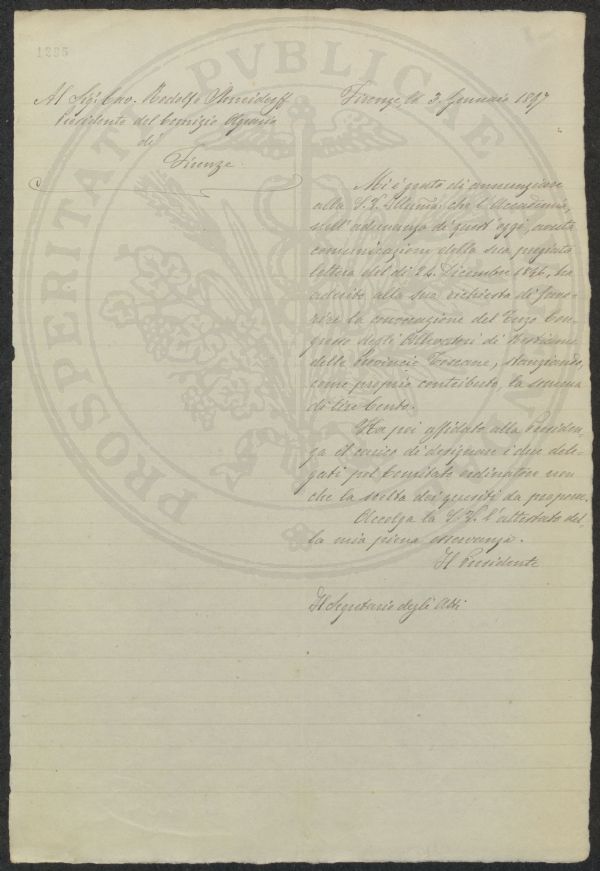 1295
PROSPERITATI PVBLICAE
Al Sig. Cav. Rodolfo
Presidente del Comizio Agrario
di
Firenze
Firenze, li 3. Gennaio 1897
Mi è grato di annunziare
alla S. V. Illma. che l'Accademia,
nell'adunanza di quest'oggi, avuta
comunicazione della sua pregiata
lettera del dì 24. Dicembre 1896, ha
aderito alla sua richiesta di favo-
rire la convocazione del Terzo Con-
gresso degli Allevatori di Bestiame
delle Provincie Toscane, stanziando,
come proprio contributo, la somma
di lire Cento.
Ha poi affidato alla Presiden-
za il carico di designare i due dele-
gati pel Comitato ordinatore non
che la scelta dei quesiti da proporre.
Accolga la S. V. l'attestato del-
la mia piena osservanza.
Il Presidente
Il Segretario degli Atti